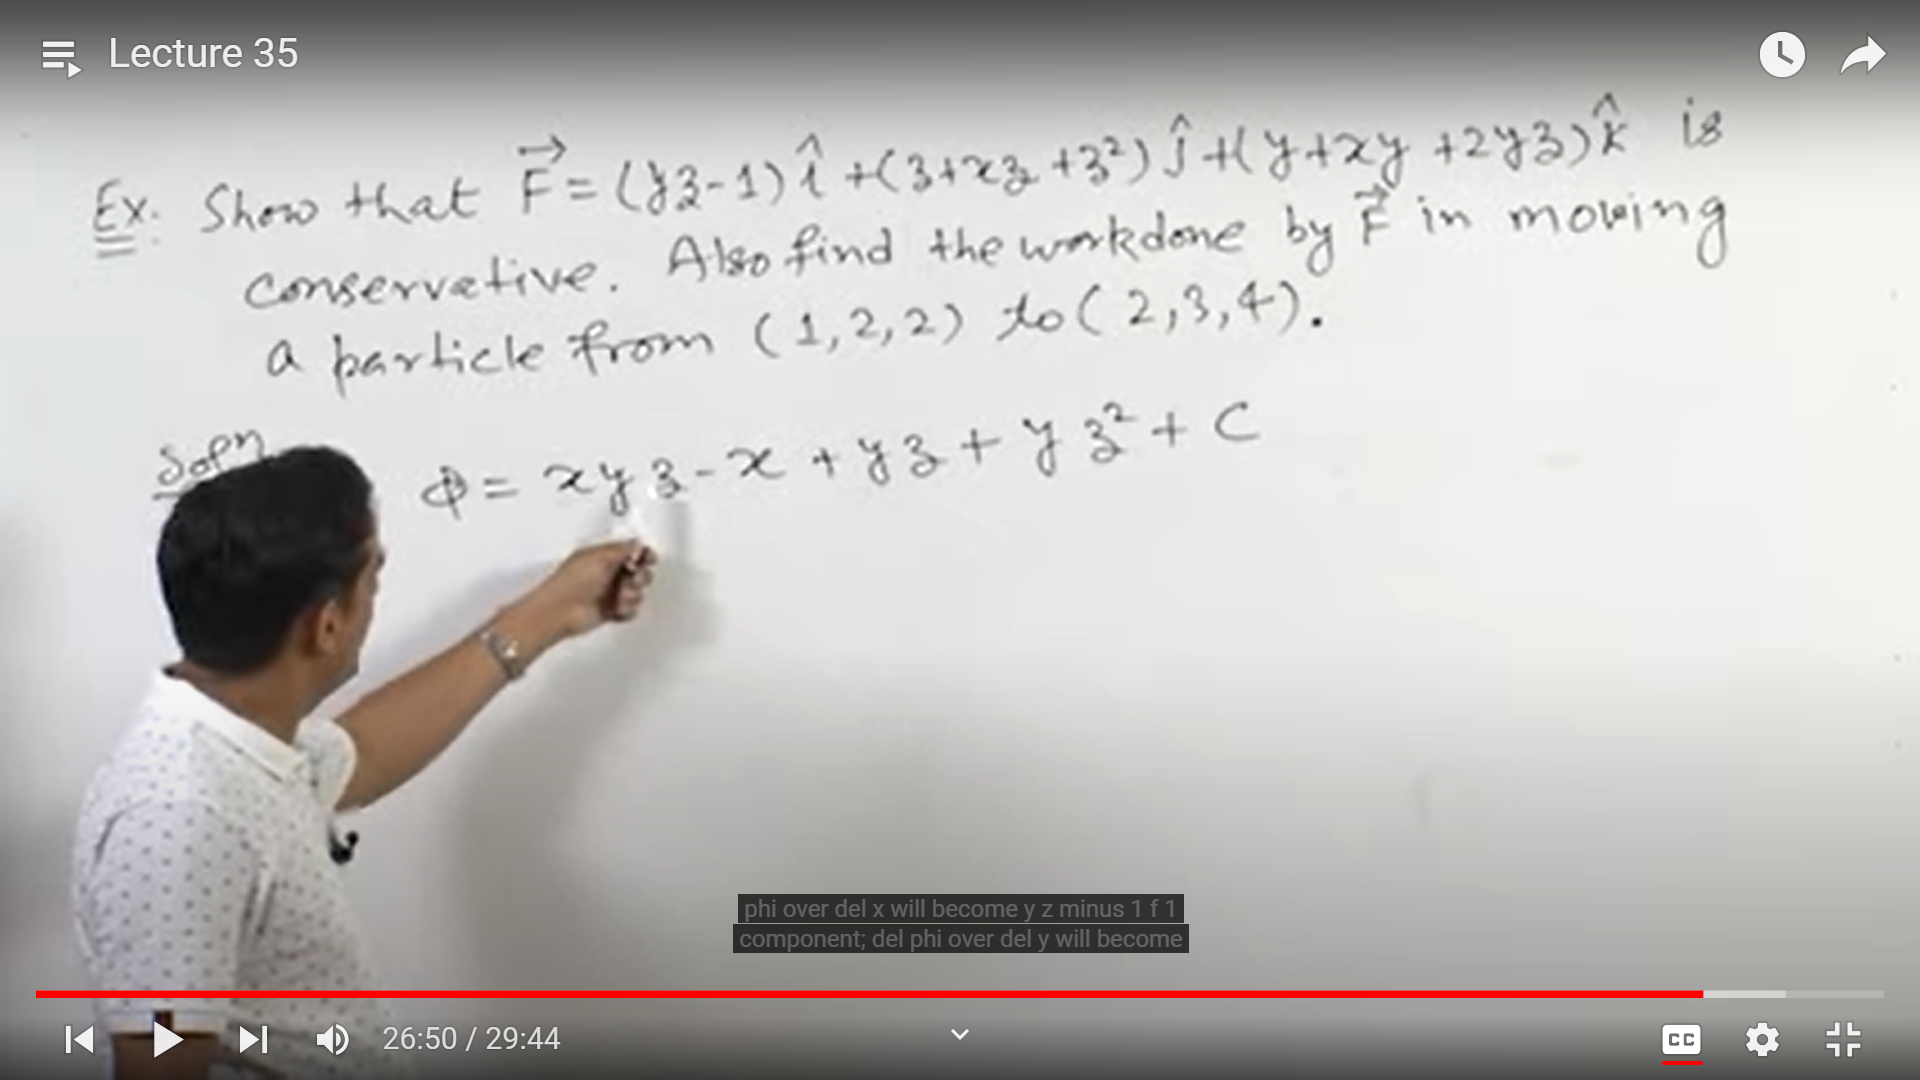 Lecture 35
Ex. Show that F⃗ = (yz-1) î + (z+xz+z²) ĵ + (y+xy+2yz) k̂ is
conservative. Also find the workdone by F⃗ in moving
a particle from (1,2,2) to (2,3,4).
Sol^n
Φ = xyz - x + yz + yz² + C
phi over del x will become y z minus 1 f 1
component; del phi over del y will become
26:50 / 29:44
CC